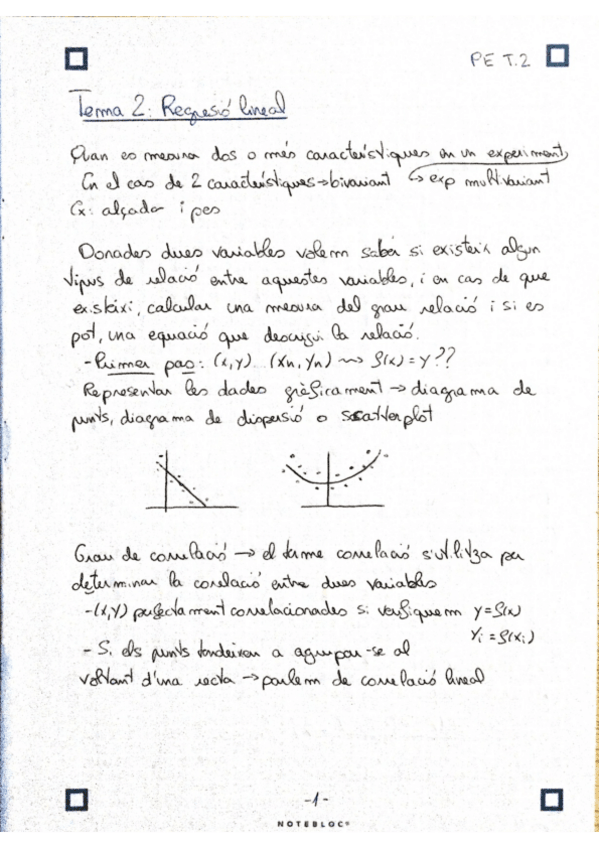 PE T.2
Tema 2: Regresió lineal
Quan es mesura dos o més característiques en un experiment
En el cas de 2 característiques→bivariant ↳ exp multivariant
Ex: alçada i pes
Donades dues variables volem saber si existeix algun
tipus de relació entre aquestes variables, i en cas de que
existeixi, calcular una mesura del grau relació i si es
pot, una equació que descrigui la relació.
-Primer pas: (x,y)...(xn,yn) ⇝ f(x)=y??
Representar les dades gràficament → diagrama de
punts, diagrama de dispersió o scatterplot
Grau de correlació → el terme correlació s'utilitza per
determinar la corelació entre dues variables
-(x,y) perfectament correlacionades si verifiquem y=f(x)
yi = f(xi)
- Si els punts tendeixen a agrupar-se al
voltant d'una recta → parlem de correlació lineal
-1-
NOTEBLOC®